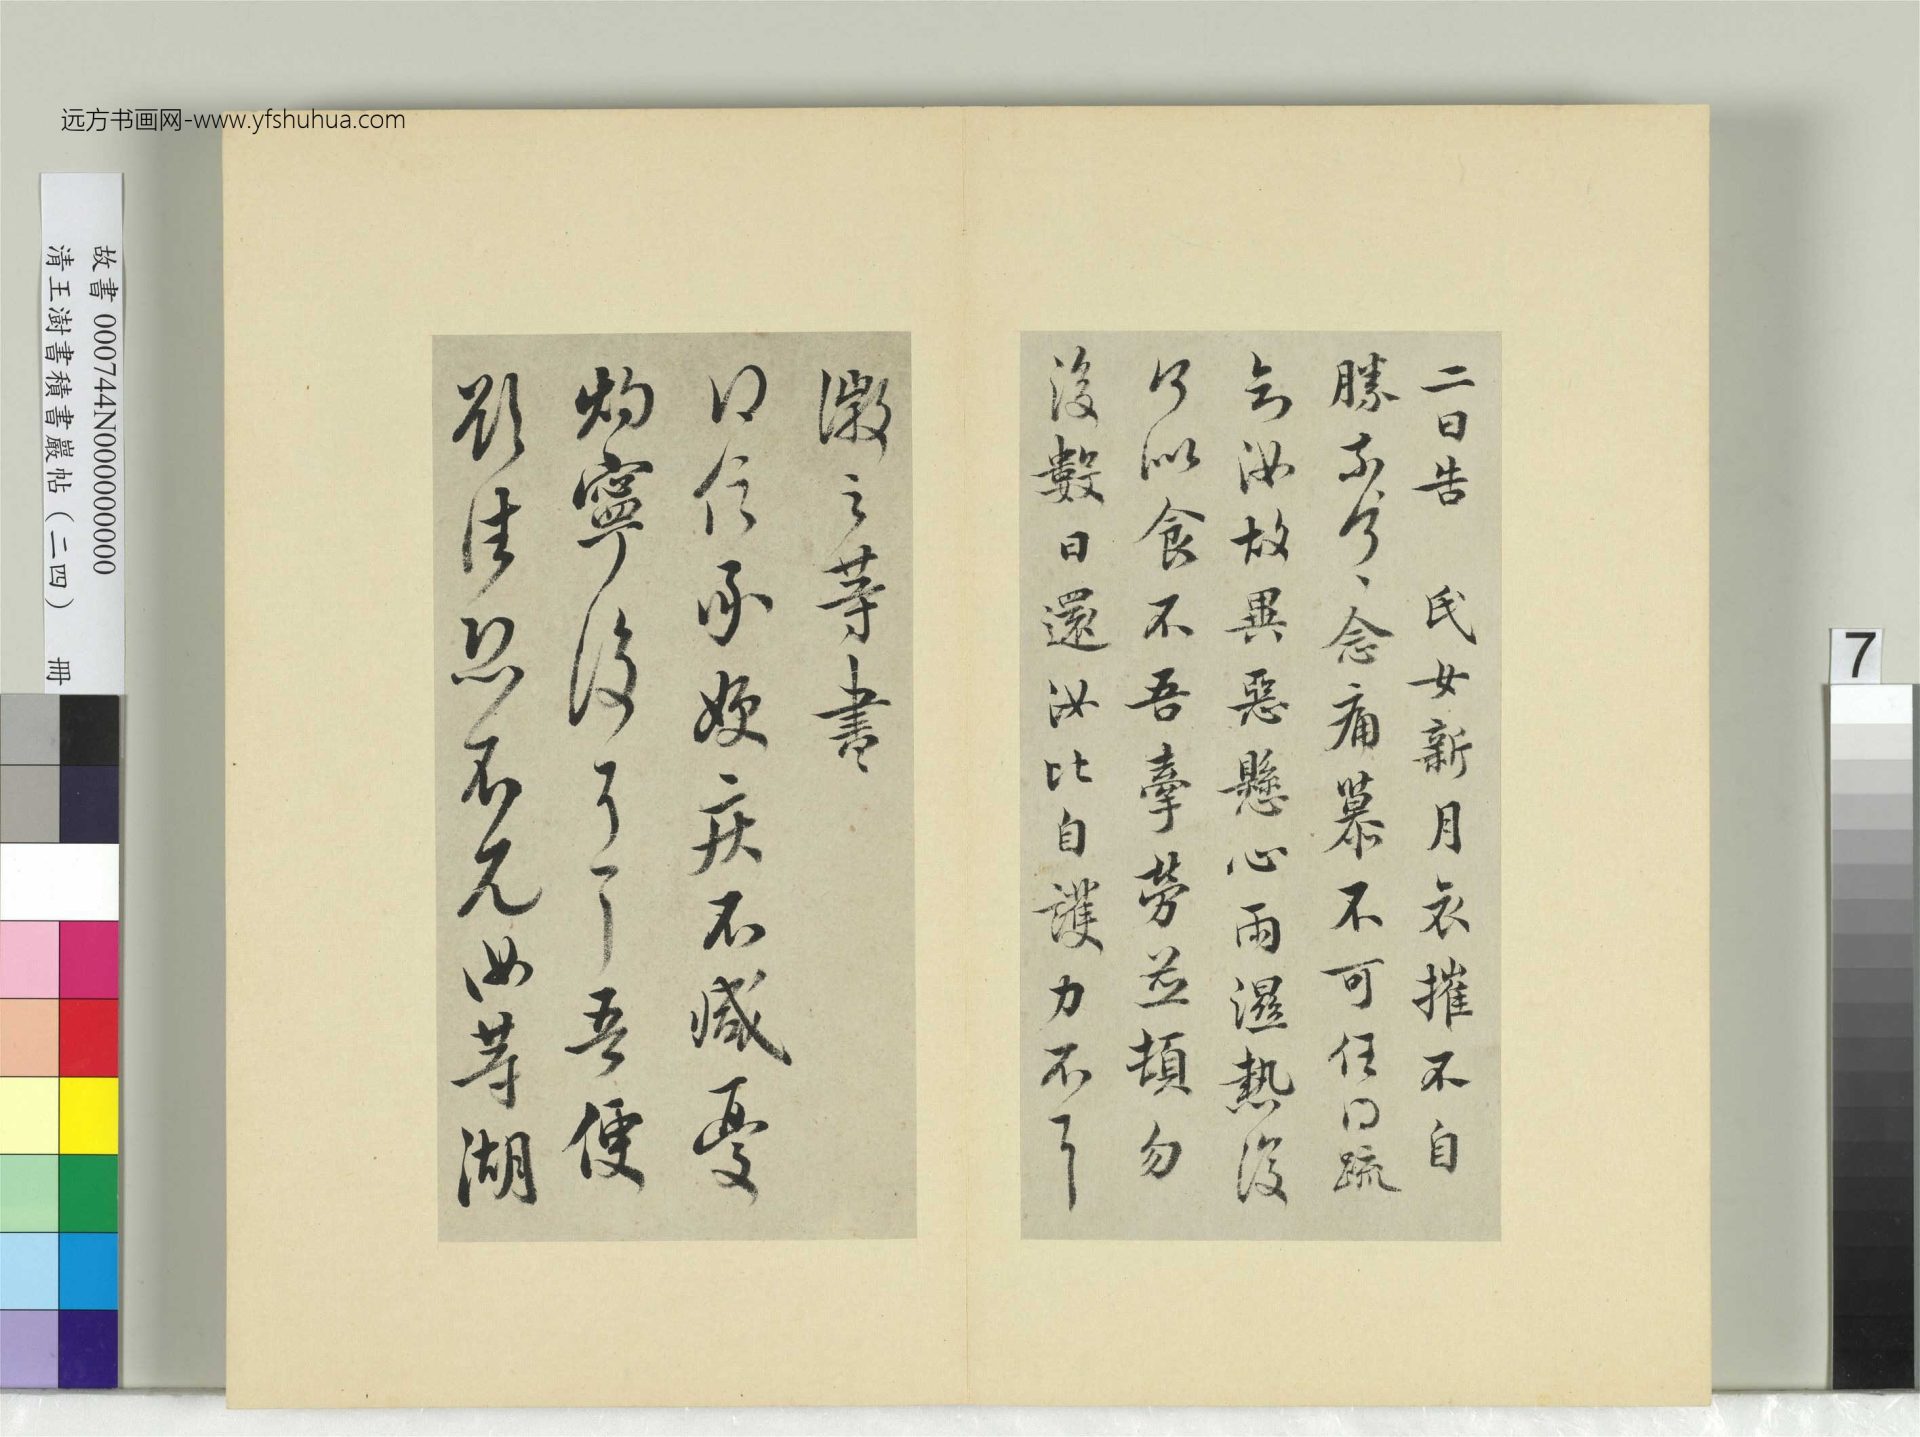 远方书画网-www.yfshuhua.com
故書 000744N000000000
清王澍書積書巖帖（二四） 冊
7
二日告 氏女新月哀摧不自
勝奈何〻念痛慕不可任得疏
知汝故異惡懸心雨濕熱復
何似食不吾牽勞並頓勿
復數日還汝比自護力不
徽之等書
得信承嫂疾不減憂
灼寧復可言吾便
欲往恐不見汝等湖